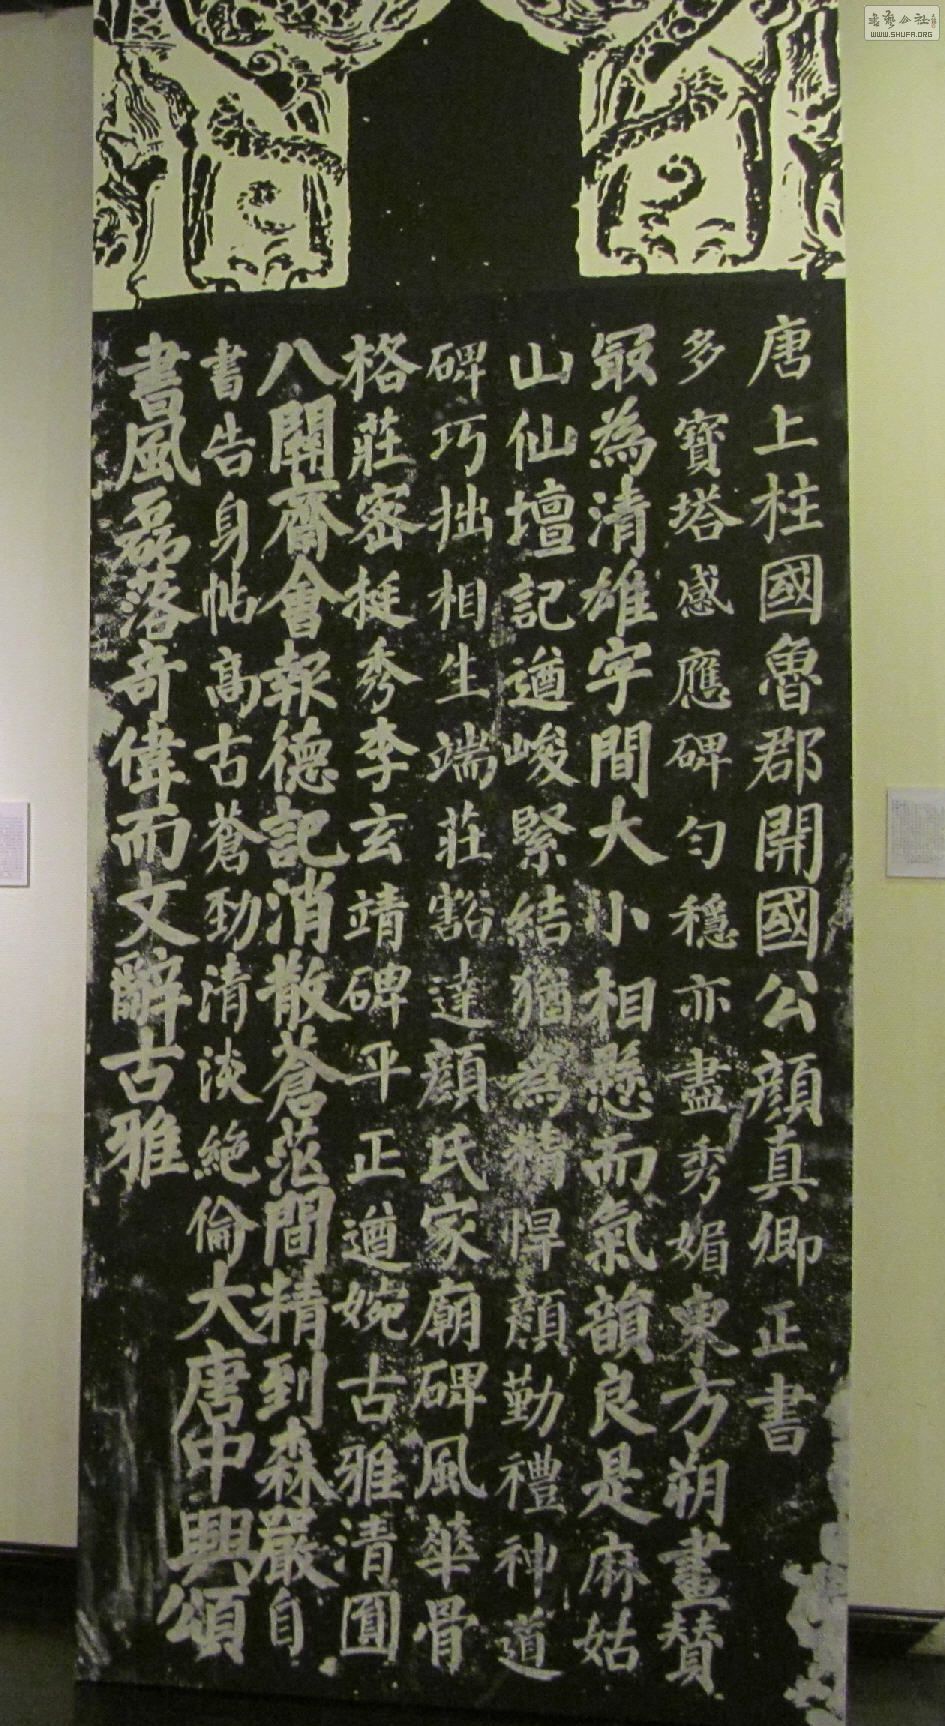 唐上柱國魯郡開國公顏真卿正書
多寶塔感應碑勻穩亦盡秀媚東方朔畫贊
最為清雄字間大小相懸而氣韻良是麻姑
山仙壇記遒峻緊結猶為精悍顏勤禮神道
碑巧拙相生端莊豁達顏氏家廟碑風華骨
格莊密挺秀李玄靖碑平正遒婉古雅清圓
八關齋會報德記消散蒼茫間精到森嚴自
書告身帖高古蒼勁清淡絶倫大唐中興頌
書風磊落奇偉而文辭古雅
書藝公社
WWW.SHUFA.ORG